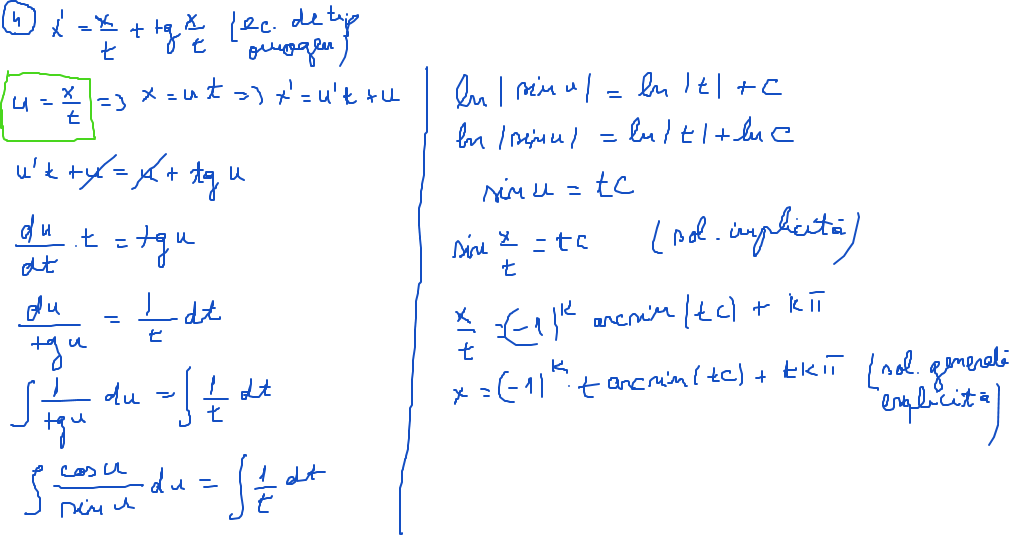 4) x' = x/t + tg x/t (ec. de tip omogen)
u = x/t => x = ut => x' = u't + u
u't + u = u + tg u
du/dt · t = tg u
du/tg u = 1/t dt
∫ 1/tg u du = ∫ 1/t dt
∫ cos u/sin u du = ∫ 1/t dt
ln |sin u| = ln |t| + C
ln |sin u| = ln |t| + ln C
sin u = tC
sin x/t = tC (sol. implicită)
x/t = (-1)^k arcsin (tC) + kπ
x = (-1)^k · t arcsin (tC) + tkπ (sol. generală explicită)